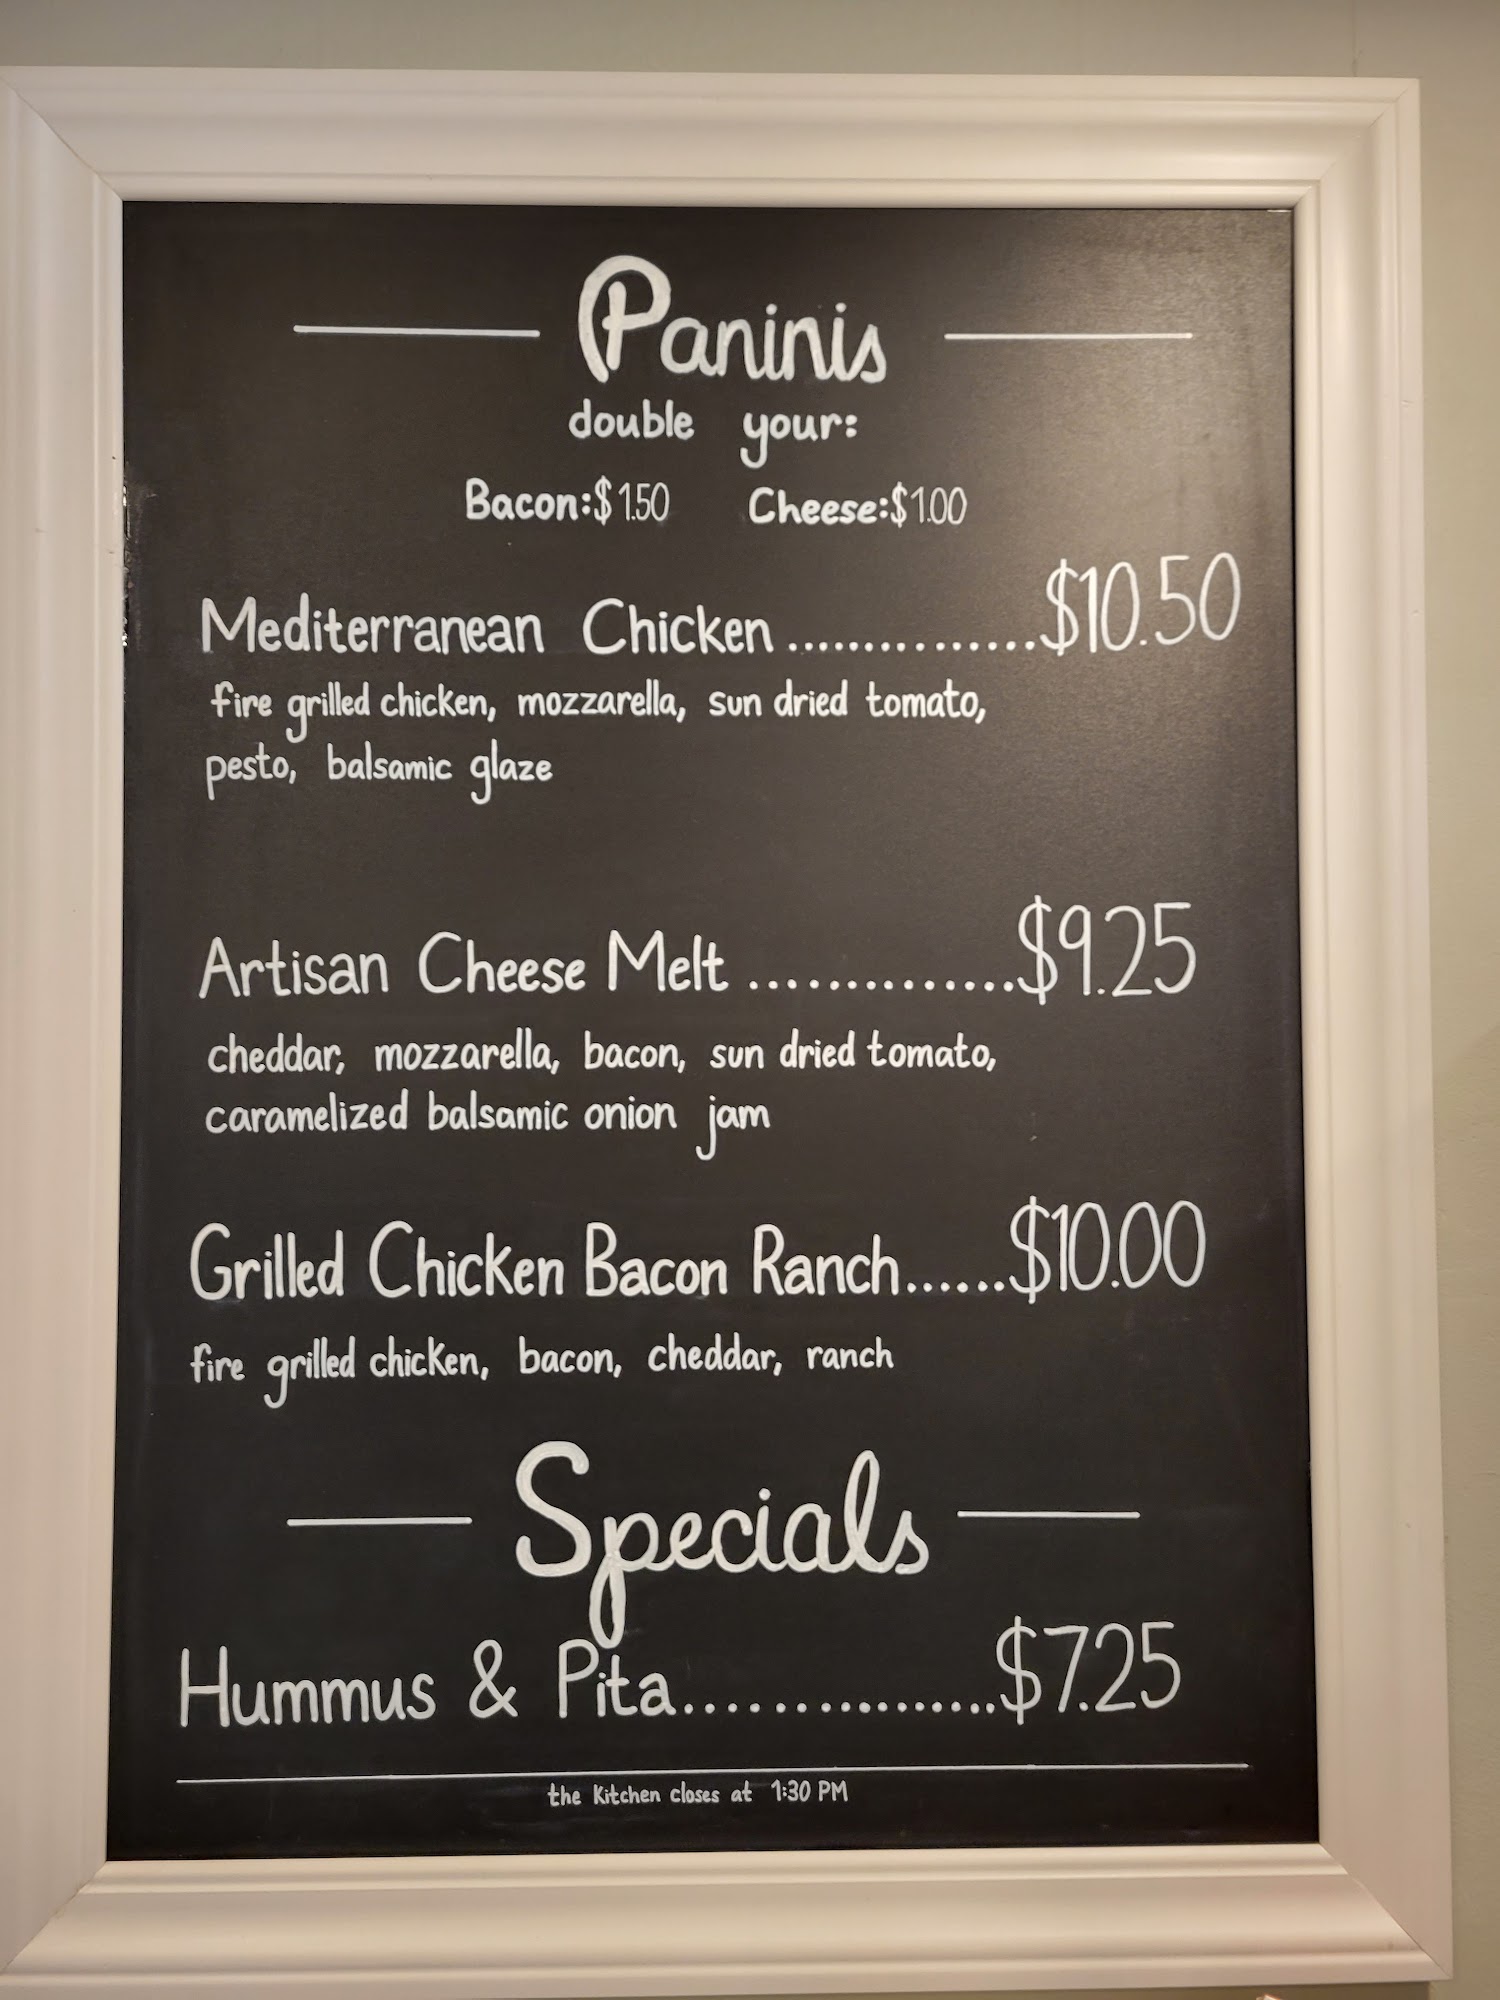 Paninis
double your:
Bacon:$1.50 Cheese:$1.00
Mediterranean Chicken...............$10.50
fire grilled chicken, mozzarella, sun dried tomato,
pesto, balsamic glaze
Artisan Cheese Melt..............$9.25
cheddar, mozzarella, bacon, sun dried tomato,
caramelized balsamic onion jam
Grilled Chicken Bacon Ranch......$10.00
fire grilled chicken, bacon, cheddar, ranch
Specials
Hummus & Pita................$7.25
the Kitchen closes at 1:30 PM